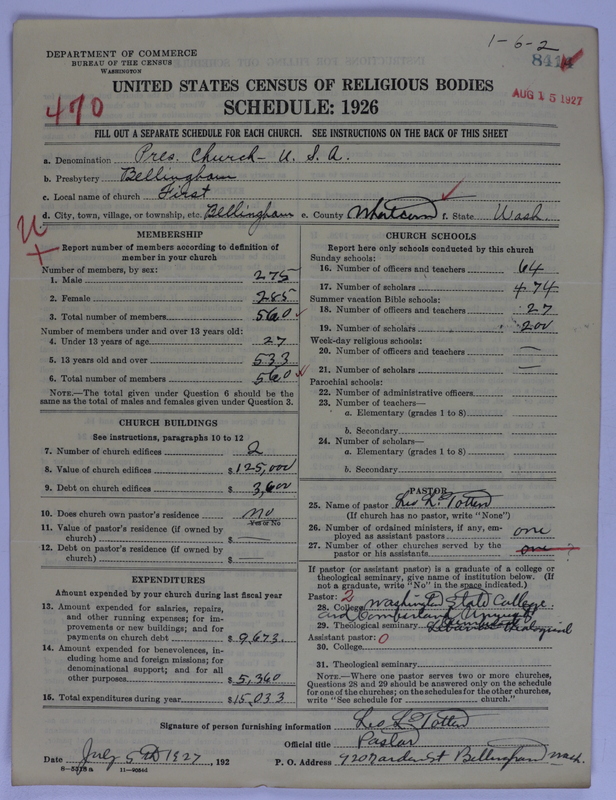 1-6-2
DEPARTMENT OF COMMERCE
BUREAU OF THE CENSUS
WASHINGTON
AUG 15 1927
UNITED STATES CENSUS OF RELIGIOUS BODIES
SCHEDULE: 1926
470
FILL OUT A SEPARATE SCHEDULE FOR EACH CHURCH. SEE INSTRUCTIONS ON THE BACK OF THIS SHEET
a. Denomination Pres. Church - U. S. A.
b. Presbytery Bellingham
c. Local name of church First
d. City, town, village, or township, etc. Bellingham e. County Whatcom f. State Wash.
MEMBERSHIP
Report number of members according to definition of
member in your church
Number of members, by sex:
1. Male 275
2. Female 285
3. Total number of members 560
Number of members under and over 13 years old:
4. Under 13 years of age 27
5. 13 years old and over 533
6. Total number of members 560
NOTE.—The total given under Question 6 should be
the same as the total of males and females given under Question 3.
CHURCH BUILDINGS
See instructions, paragraphs 10 to 12
7. Number of church edifices 2
8. Value of church edifices $125,000
9. Debt on church edifices $3,600
10. Does church own pastor's residence? no
Yes or No
11. Value of pastor's residence (if owned by
church) $ —
12. Debt on pastor's residence (if owned by
church) $ —
EXPENDITURES
Amount expended by your church during last fiscal year
13. Amount expended for salaries, repairs,
and other running expenses; for im-
provements or new buildings; and for
payments on church debt $9,673.
14. Amount expended for benevolences, in-
cluding home and foreign missions; for
denominational support; and for all
other purposes $5,360
15. Total expenditures during year $15,033
CHURCH SCHOOLS
Report here only schools conducted by this church
Sunday schools:
16. Number of officers and teachers 64
17. Number of scholars 474
Summer vacation Bible schools:
18. Number of officers and teachers 27
19. Number of scholars 200
Week-day religious schools:
20. Number of officers and teachers —
21. Number of scholars —
Parochial schools:
22. Number of administrative officers
23. Number of teachers—
a. Elementary (grades 1 to 8)
b. Secondary
24. Number of scholars—
a. Elementary (grades 1 to 8)
b. Secondary
PASTOR
25. Name of pastor Leo L. Totten
(If church has no pastor, write "None")
26. Number of ordained ministers, if any, em-
ployed as assistant pastors one
27. Number of other churches served by the
pastor or his assistants one
If pastor (or assistant pastor) is a graduate of a college or
theological seminary, give name of institution below. (If
not a graduate, write "No" in the space indicated.)
Pastor: 2
28. College Washington State College
and Cumberland University
29. Theological seminary Lebanon Theological
Assistant pastor: 0
30. College
31. Theological seminary
NOTE.—Where one pastor serves two or more churches,
Questions 28 and 29 should be answered only on the schedule
for one of the churches; on the schedules for the other churches,
write "See schedule for church."
Signature of person furnishing information Leo L. Totten
Official title Pastor
Date July 5th 1927, 192 P. O. Address 920 Garden St Bellingham Wash.
8-5318a 11-9046d